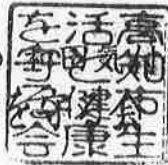 高知市生
活と健康
を守る会